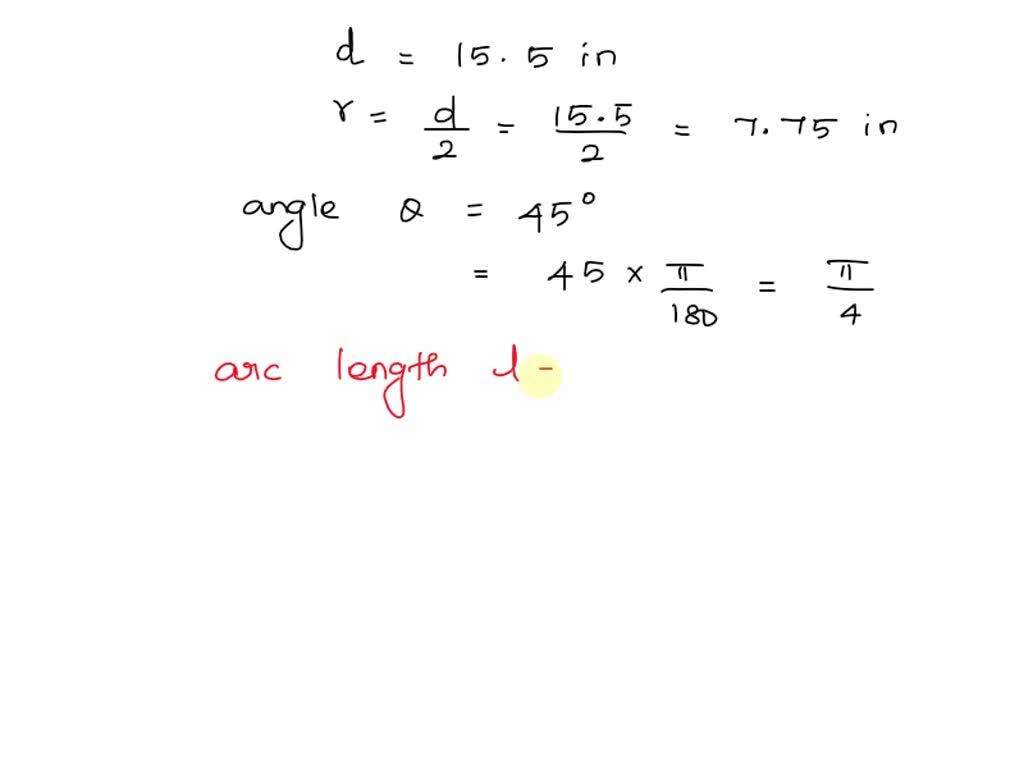 d = 15.5 in
r = d/2 = 15.5/2 = 7.75 in
angle θ = 45°
= 45 × π/180 = π/4
arc length l =